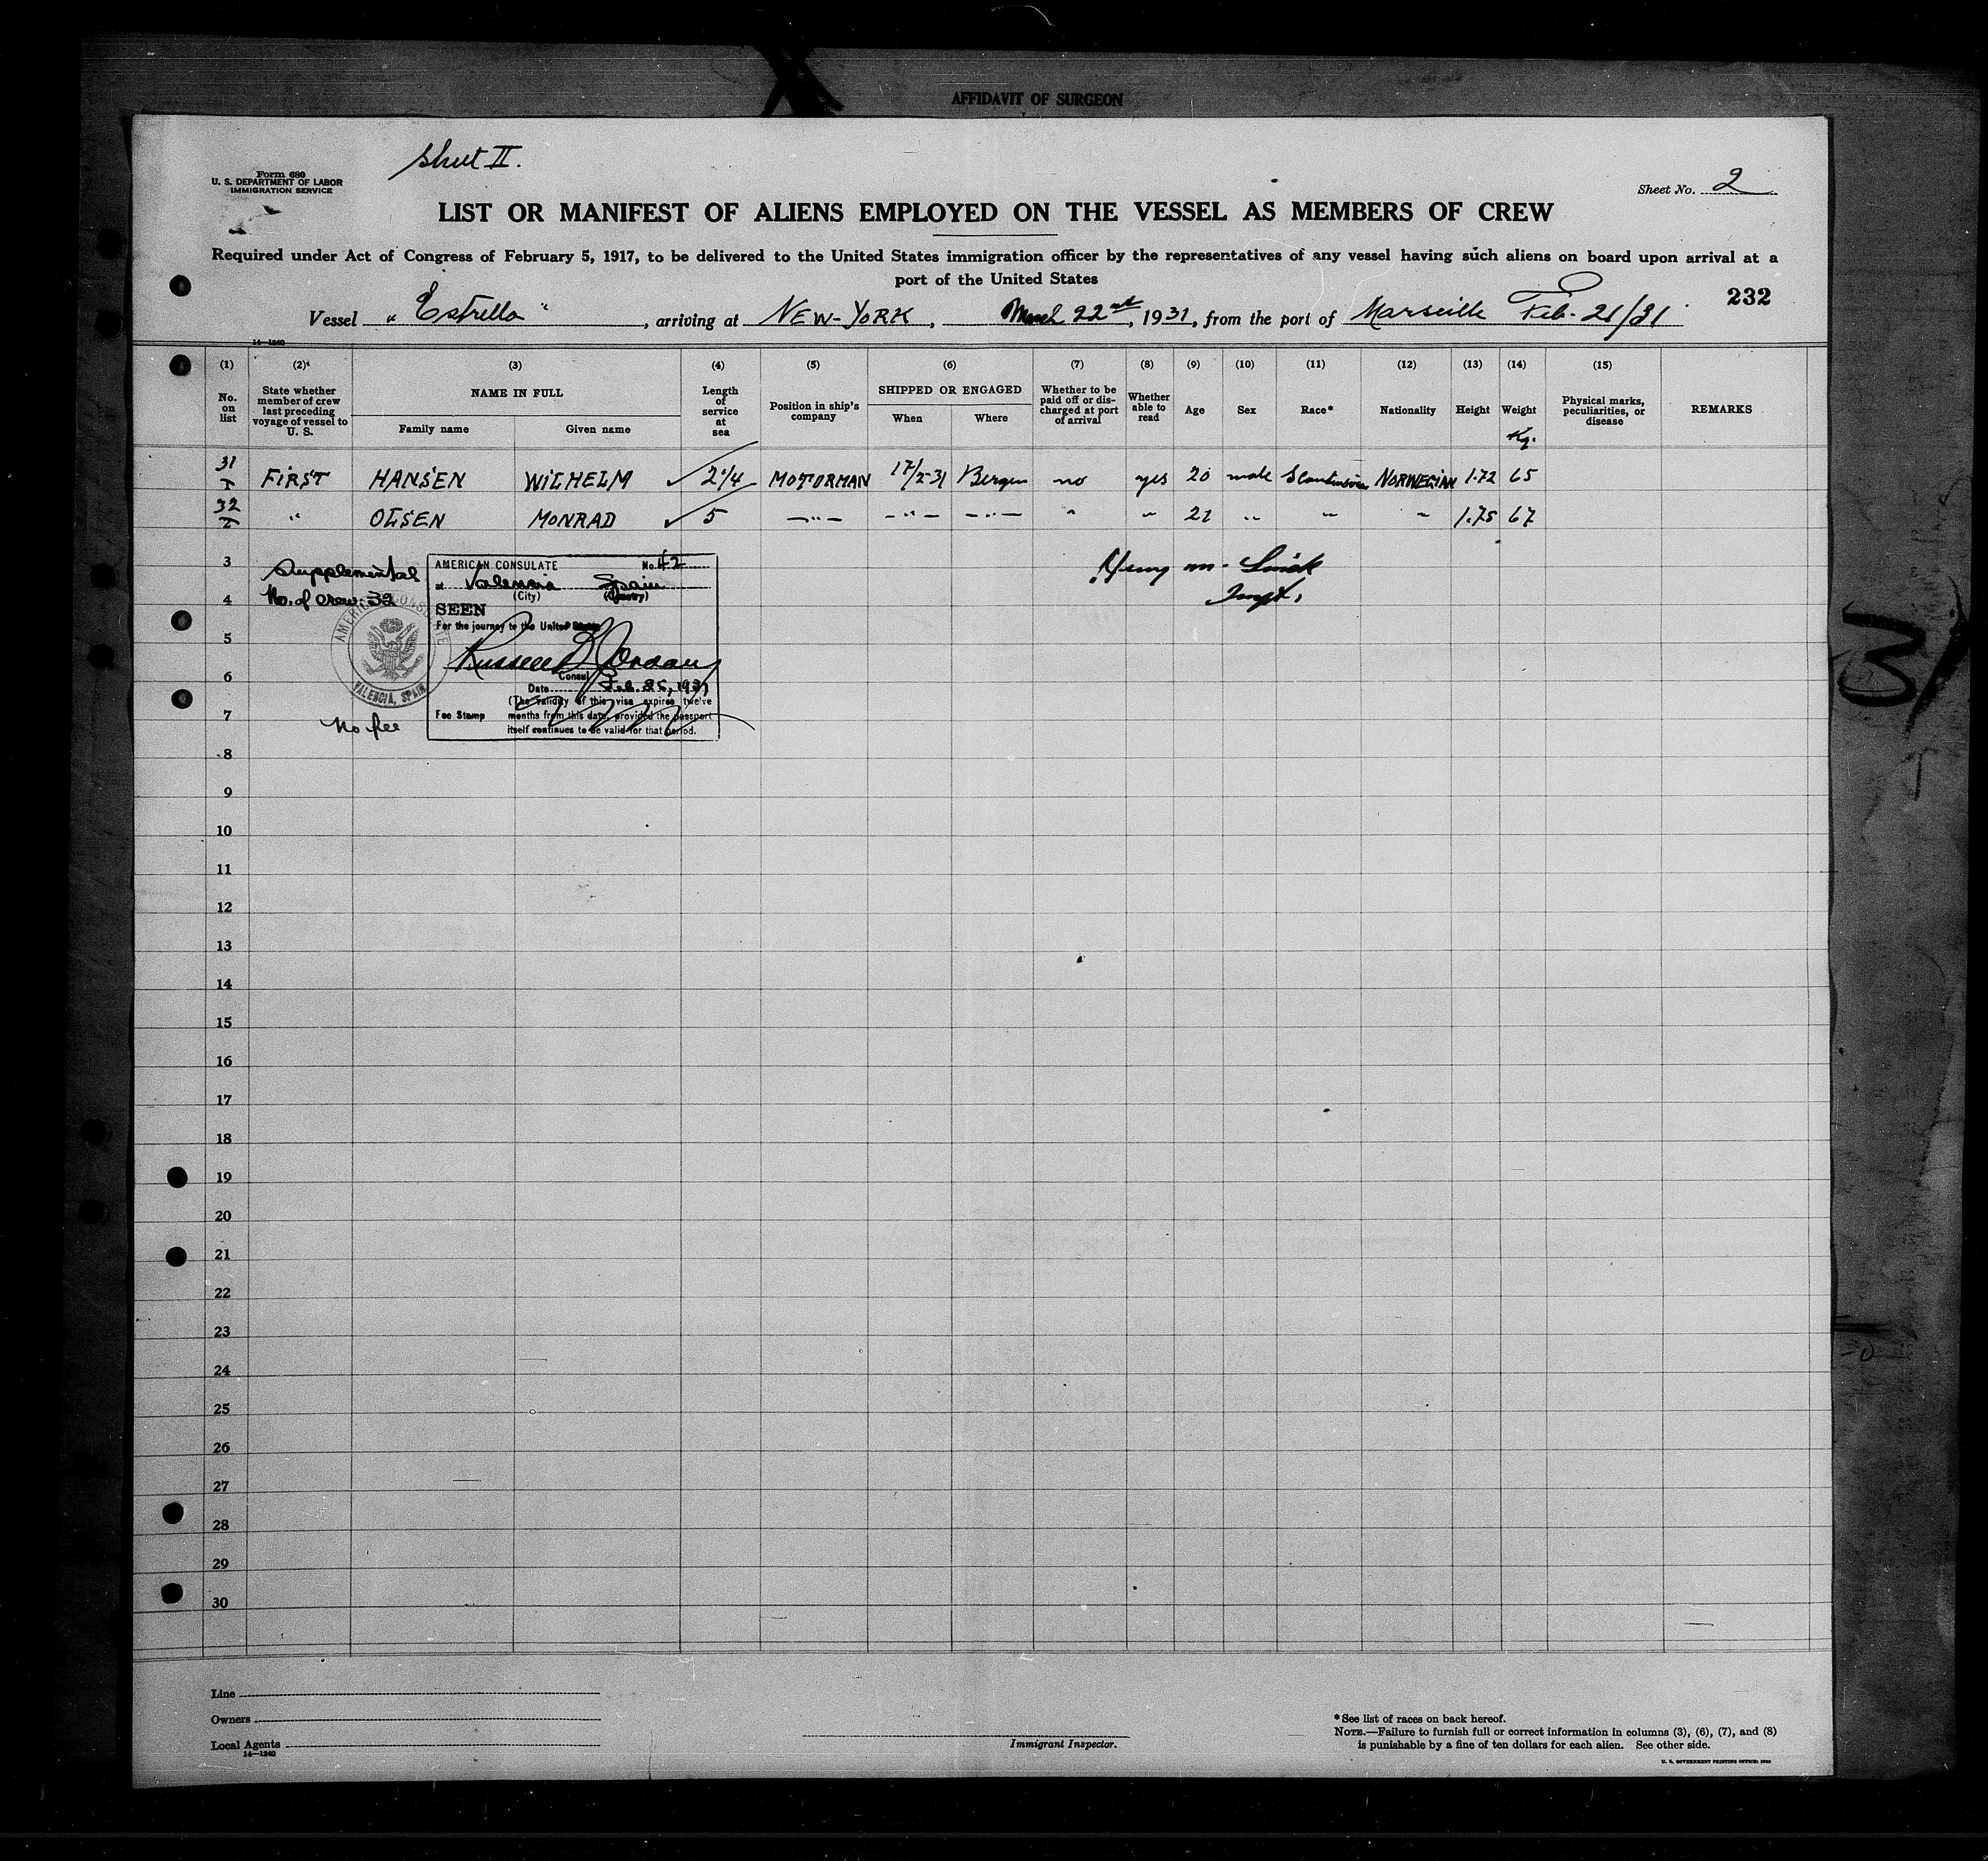 AFFIDAVIT OF SURGEON
Sheet II.
Form 680
U. S. DEPARTMENT OF LABOR
IMMIGRATION SERVICE
Sheet No. 2
LIST OR MANIFEST OF ALIENS EMPLOYED ON THE VESSEL AS MEMBERS OF CREW
Required under Act of Congress of February 5, 1917, to be delivered to the United States immigration officer by the representatives of any vessel having such aliens on board upon arrival at a
port of the United States
232
Vessel "Estrella", arriving at NEW-YORK, March 22nd, 1931, from the port of Marseille Feb. 21/31
14—1240
(1) (2)* (3) (4) (5) (6) (7) (8) (9) (10) (11) (12) (13) (14) (15)
No. on list State whether member of crew last preceding voyage of vessel to U. S. NAME IN FULL Family name Given name Length of service at sea Position in ship's company SHIPPED OR ENGAGED When Where Whether to be paid off or discharged at port of arrival Whether able to read Age Sex Race* Nationality Height Weight Kg. Physical marks, peculiarities, or disease REMARKS
31 FIRST HANSEN WILHELM ✓ 2 1/4 MOTORMAN 17/2-31 Bergen no yes 20 male Scandinavian NORWEGIAN 1.72 65
32 " OLSEN MONRAD ✓ 5 —"— —"— —"— " " 21 " " " 1.75 67
3
4
5
6
7
Supplemental
No. of crew-32
AMERICAN CONSULATE No. 42
at Valencia Spain
(City) (Country)
SEEN
For the journey to the United States
Russell B Jordan
Consul
Date Feb. 25, 1931
(The validity of this visa expires twelve
Fee Stamp months from this date, provided the passport
itself continues to be valid for that period.
AMERICAN CONSULATE
VALENCIA, SPAIN
No fee
Inspt.
8
9
10
11
12
13
14
15
16
17
18
19
20
21
22
23
24
25
26
27
28
29
30
Line
Owners
Local Agents
14—1240
Immigrant Inspector.
*See list of races on back hereof.
NOTE.—Failure to furnish full or correct information in columns (3), (6), (7), and (8)
is punishable by a fine of ten dollars for each alien. See other side.